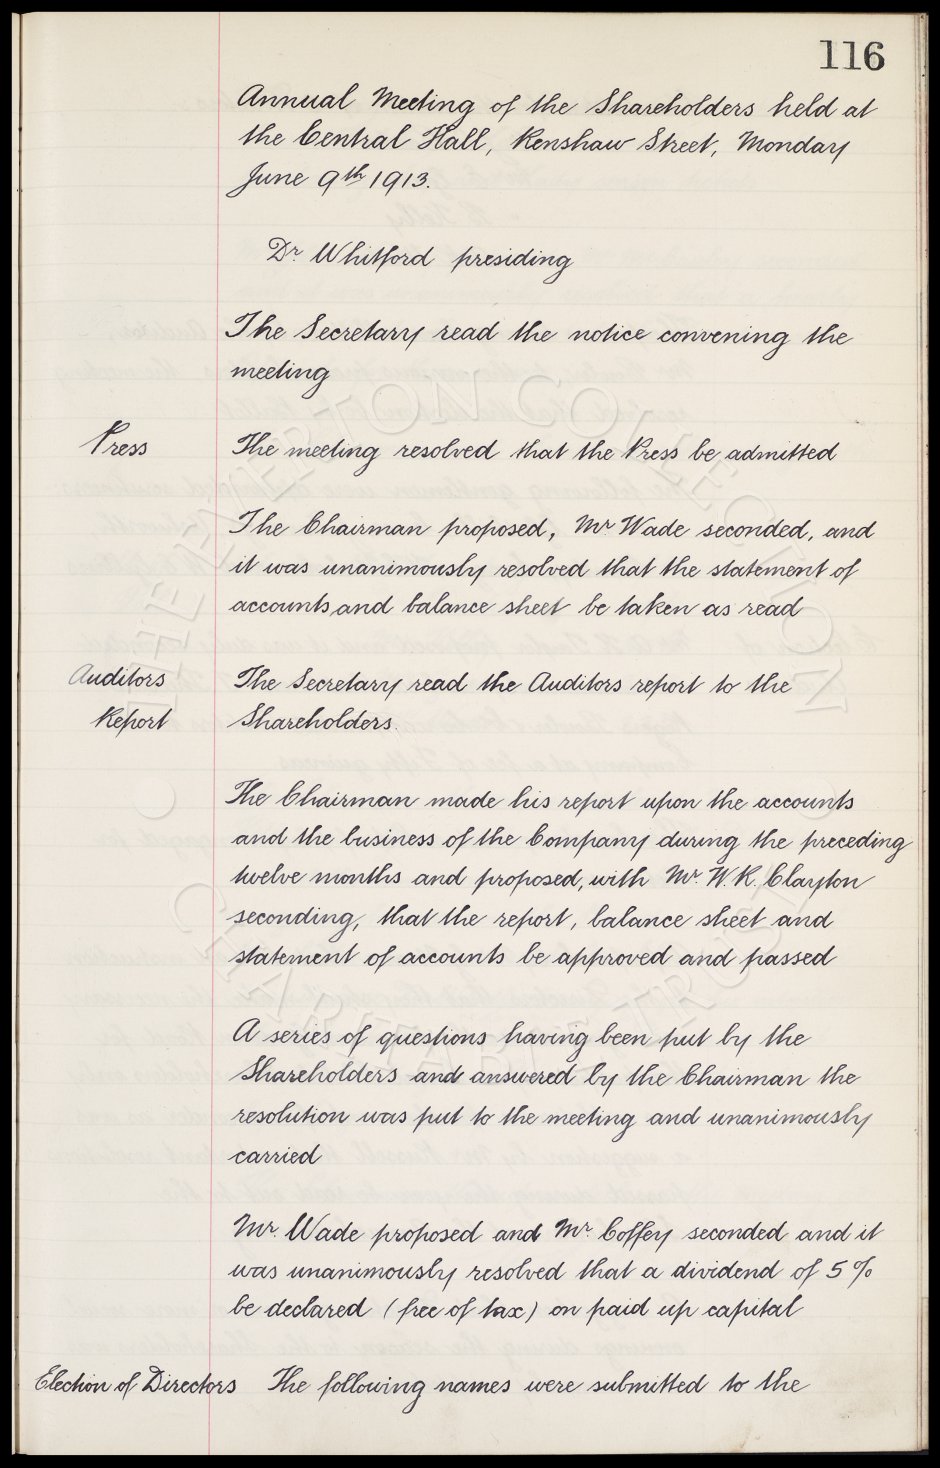 116
Annual Meeting of the Shareholders held at
the Central Hall, Renshaw Street, Monday
June 9th 1913.
Dr. Whitford presiding
The Secretary read the notice convening the
meeting
Press
The meeting resolved that the Press be admitted
The Chairman proposed, Mr. Wade seconded, and
it was unanimously resolved that the statement of
accounts and balance sheet be taken as read
Auditors
Report
The Secretary read the Auditors report to the
Shareholders.
The Chairman made his report upon the accounts
and the business of the Company during the preceding
twelve months and proposed, with Mr. W. R. Clayton
seconding, that the report, balance sheet and
statement of accounts be approved and passed
A series of questions having been put by the
Shareholders and answered by the Chairman the
resolution was put to the meeting and unanimously
carried
Mr. Wade proposed and Mr. Coffey seconded and it
was unanimously resolved that a dividend of 5%
be declared (free of tax) on paid up capital
Election of Directors The following names were submitted to the